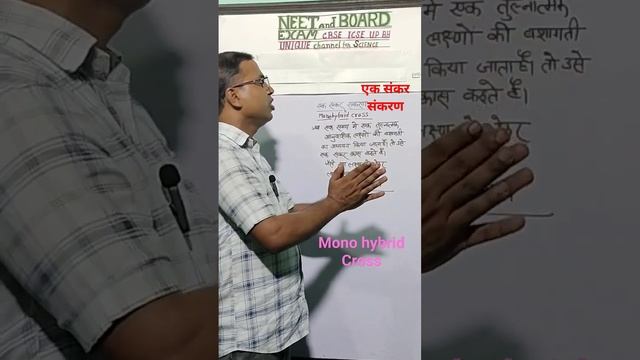 NEET and BOARD
EXAM CBSE ICSE UP BH
UNIQUE channel for SCIENCE
एक संकर
संकरण
एक संकर
MONOHYBRID CROSS
जब एक समय में एक तुलनात्मक
आनुवांशिक लक्षणों की वंशागती
का अध्ययन किया जाता है। तो उसे
एक संकर क्रास कहते हैं।
Mono hybrid
Cross
में एक तुलनात्म
लक्षणो की वंशागती
किया जाता है। तो उसे
क्रास कहते हैं।